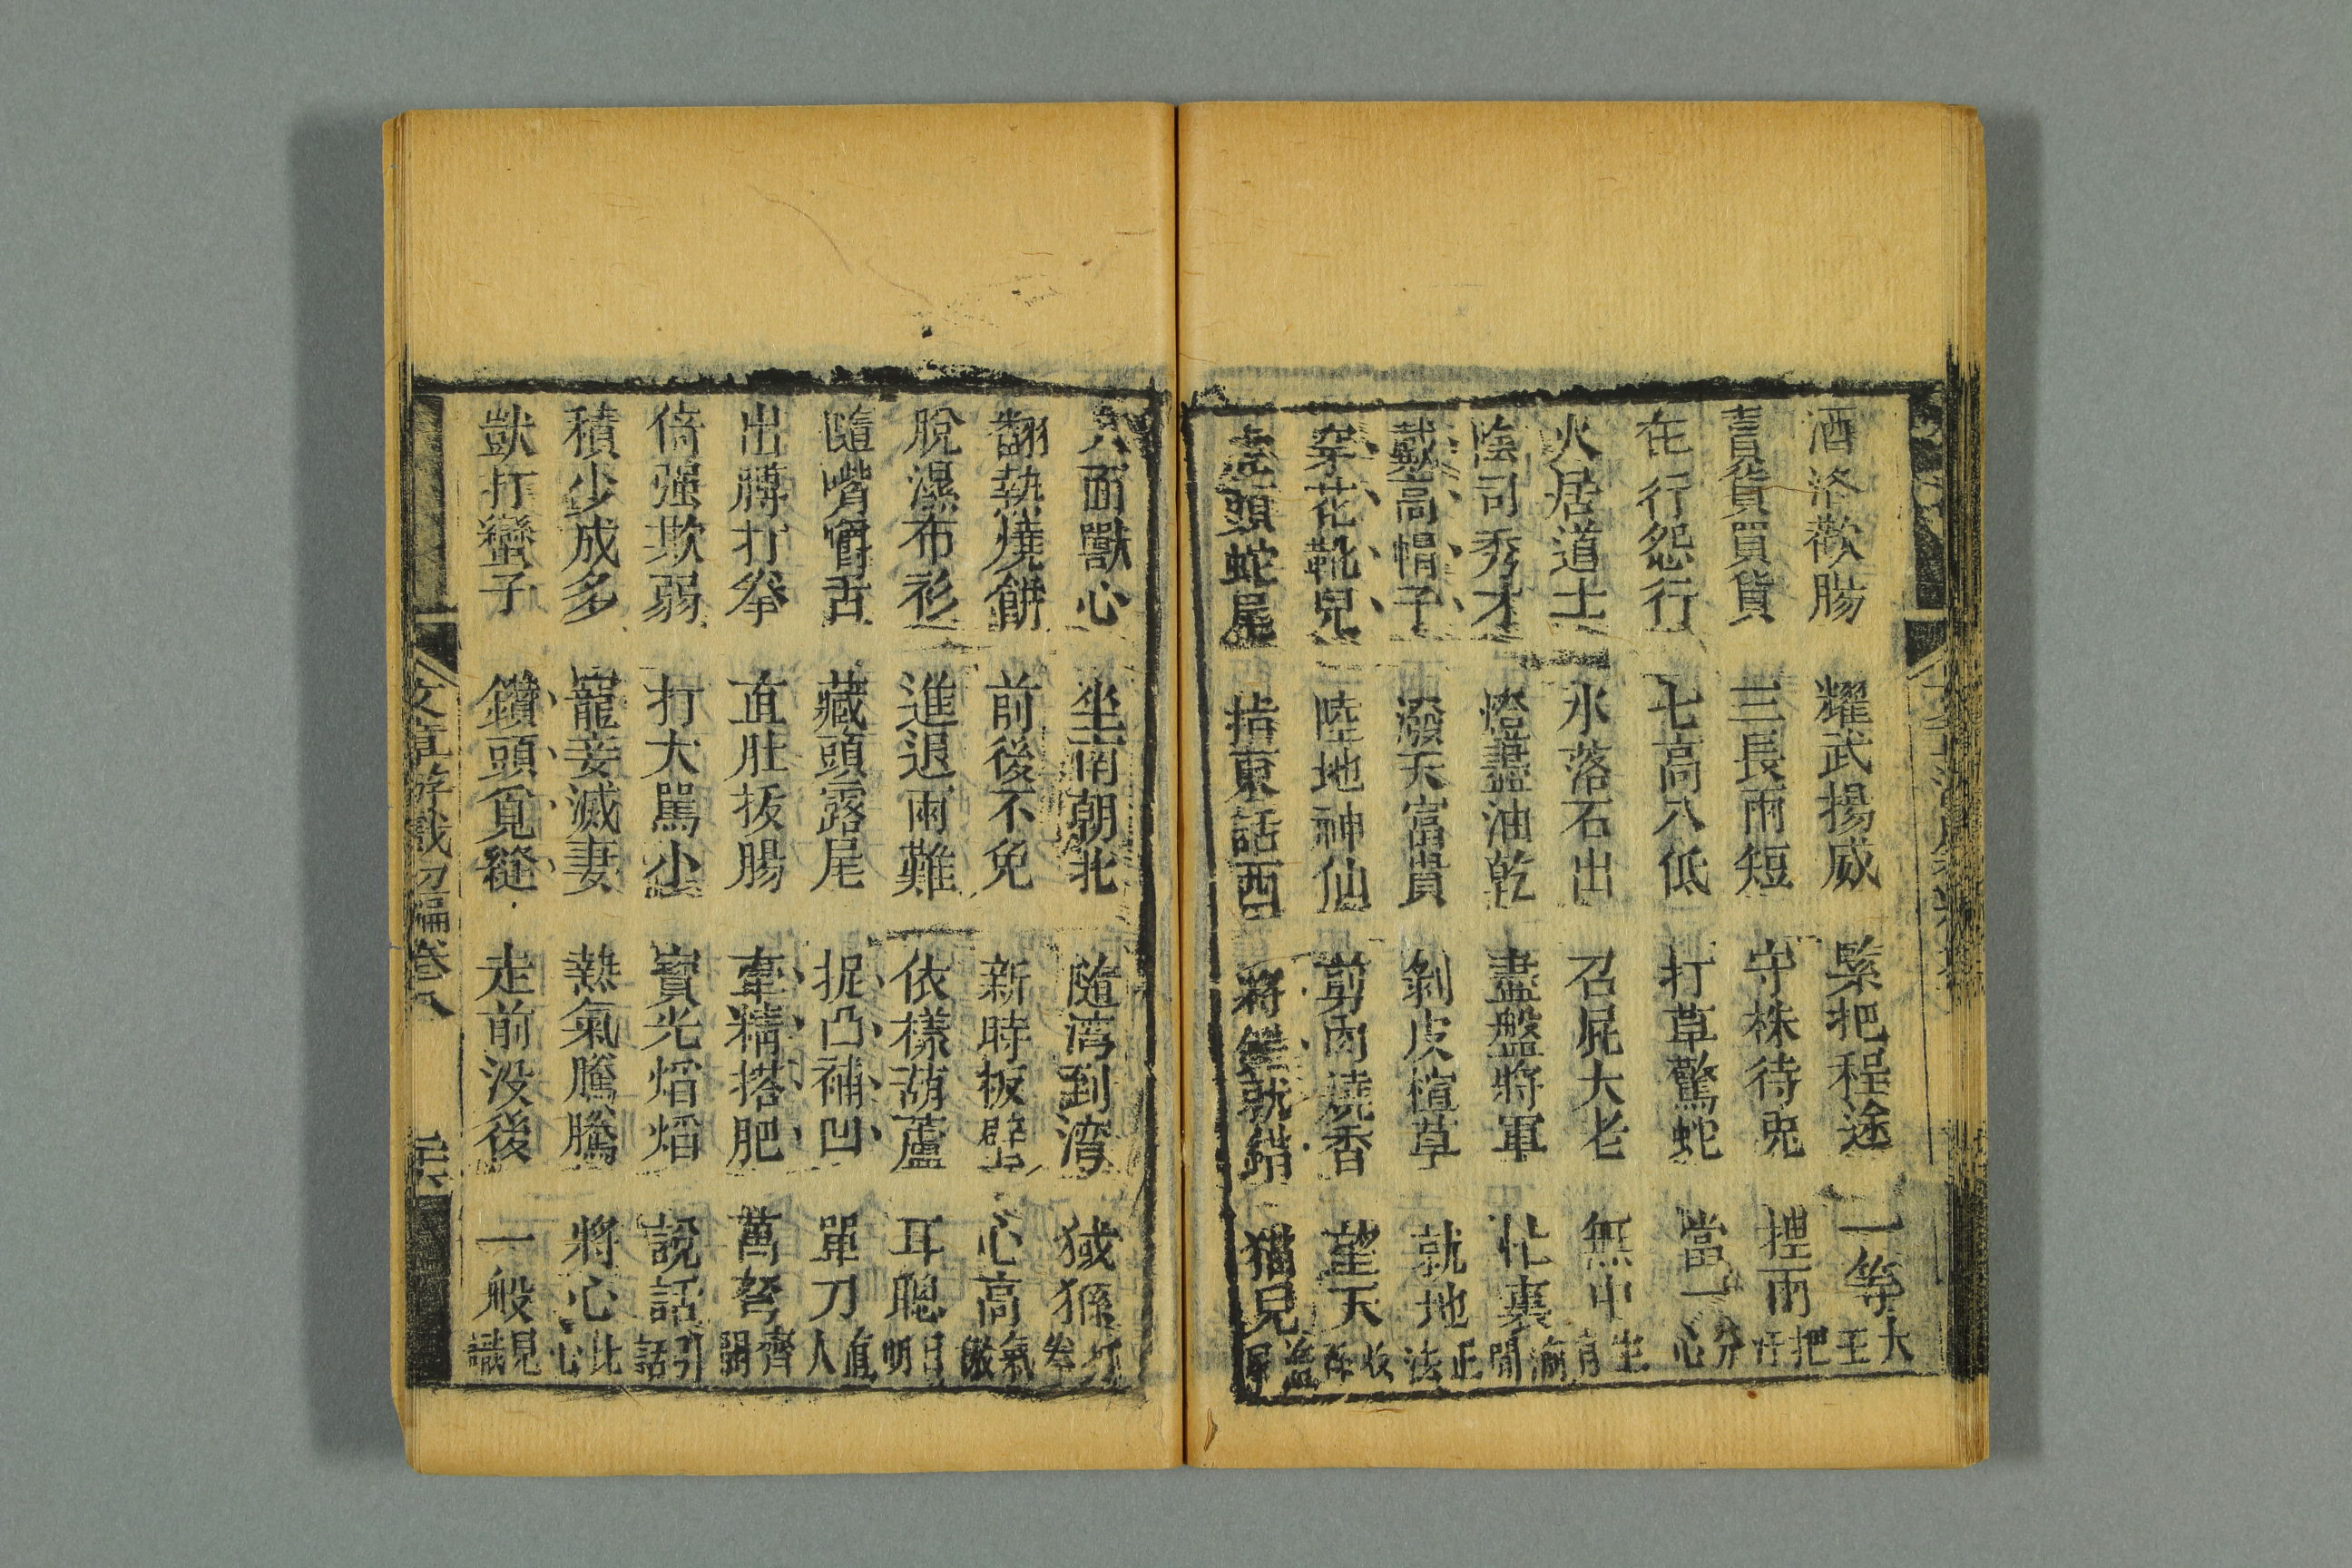 酒落歡腸 耀武揚威 緊把程途 一等大王
賣貨買貨 三長兩短 守株待兎 捏兩把汗
在行怨行 七高八低 打草驚蛇 當一分心
火居道士 水落石出 召屁大老 無中生有
陰司秀才 燈盡油乾 盡盤將軍 忙裏偷閒
戴高帽子 潑天富貴 剝皮楦草 就地正法
穿花靴兒 陸地神仙 剪肉燒香 望天收
虎頭蛇尾 指東話西 將 就 猫兒蓋屎
人面獸心 坐南朝北 隨湾到湾 猢猻打拳
翻熱燒餅 前後不免 新時板壁 心高氣傲
脫濕布衫 進退兩難 依樣葫蘆 耳聰目明
隨嘴嚼舌 藏頭露尾 捉凸補凹 單刀直人
出膊打拳 直肚拔腸 牽精搭肥 萬弩齊開
倚强欺弱 打大罵小 寳光熖熖 說話引話
積少成多 寵妾滅妻 熱氣騰騰 將心比心
獃打蠻子 鑽頭覓縫 走前没後 一般見識
文章游戲初編卷八